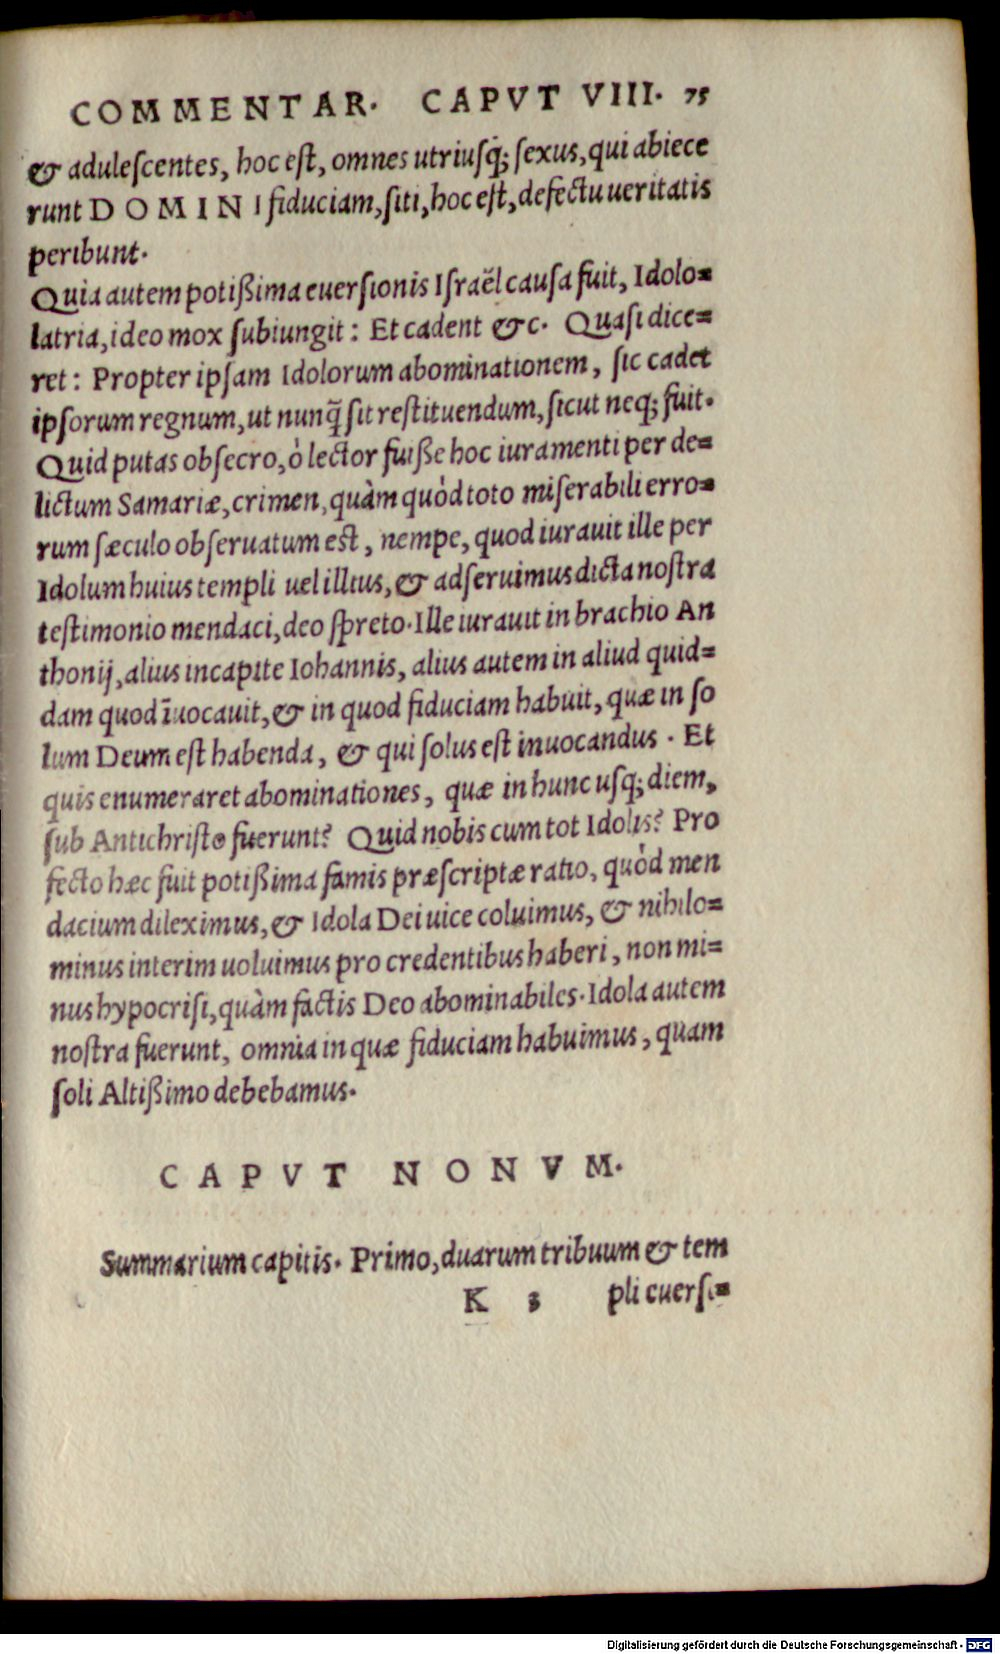 COMMENTAR. CAPVT VIII. 75
& adulescentes, hoc est, omnes utriusq; sexus, qui abiece
runt DOMINI fiduciam, siti, hoc est, defectu ueritatis
peribunt.
Quia autem potißima euersionis Israël causa fuit, Idolo=
latria, ideo mox subiungit: Et cadent &c. Quasi dice=
ret: Propter ipsam Idolorum abominationem, sic cadet
ipsorum regnum, ut nunq̃ sit restituendum, sicut neq; fuit.
Quid putas obsecro, ò lector fuiße hoc iuramenti per de=
lictum Samariæ, crimen, quàm quòd toto miserabili erro=
rum sæculo obseruatum est, nempe, quod iurauit ille per
Idolum huius templi uel illius, & adseruimus dicta nostra
testimonio mendaci, deo spreto. Ille iurauit in brachio An
thonij, alius in capite Iohannis, alius autem in aliud quid=
dam quod īuocauit, & in quod fiduciam habuit, quæ in so
lum Deum est habenda, & qui solus est inuocandus. Et
quis enumeraret abominationes, quæ in hunc usq; diem,
sub Antichristo fuerunt? Quid nobis cum tot Idolis? Pro
fecto hæc fuit potißima famis præscriptæ ratio, quòd men
dacium dileximus, & Idola Dei uice coluimus, & nihilo=
minus interim uoluimus pro credentibus haberi, non mi=
nus hypocrisi, quàm factis Deo abominabiles. Idola autem
nostra fuerunt, omnia in quæ fiduciam habuimus, quam
soli Altißimo debebamus.
CAPVT NONVM.
Summarium capitis. Primo, duarum tribuum & tem
K 3 pli euersi=
Digitalisierung gefördert durch die Deutsche Forschungsgemeinschaft - DFG